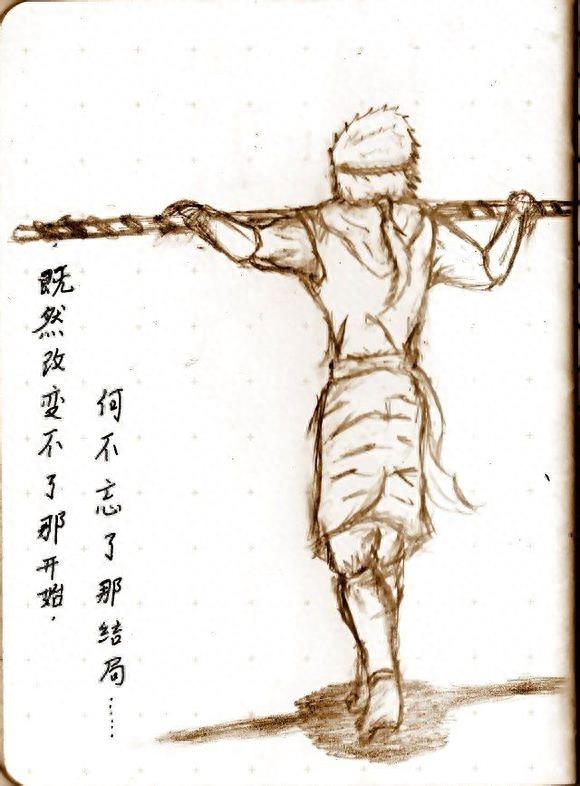 既然改变不了那开始．
何不忘了那结局……